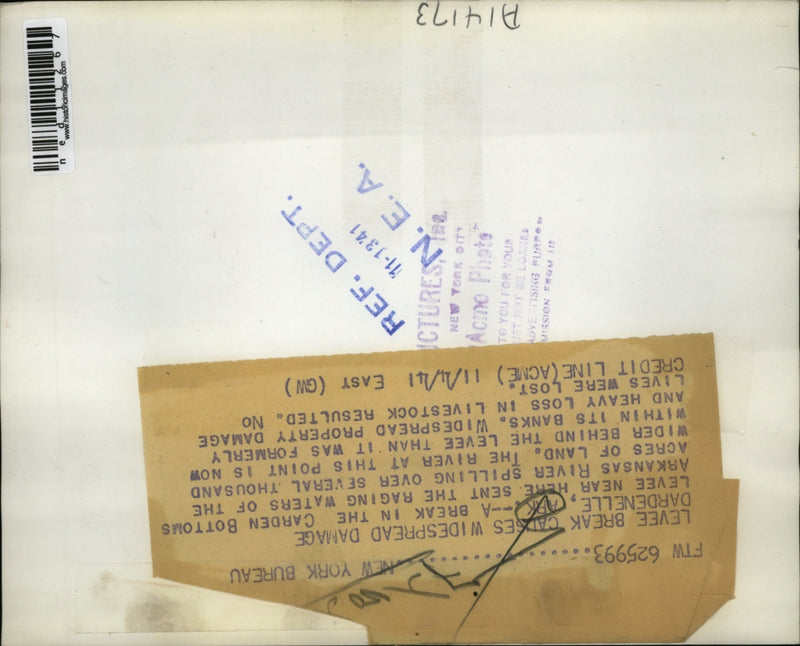 A14173
ned 11267
www.historicimages.com
REF. DEPT.
11-1341
N. E. A.
ICTURES, Inc.
NEW YORK CITY
Acme Photo
TO YOU FOR YOUR
NOT BE LOANED
ADVERTISING PURPOS
MISSION FROM US
FTW 625993..................NEW YORK BUREAU
LEVEE BREAK CAUSES WIDESPREAD DAMAGE
DARDENELLE, ARK.--A BREAK IN THE CARDEN BOTTOMS
LEVEE NEAR HERE SENT THE RAGING WATERS OF THE
ARKANSAS RIVER SPILLING OVER SEVERAL THOUSAND
ACRES OF LAND. THE RIVER AT THIS POINT IS NOW
WIDER BEHIND THE LEVEE THAN IT WAS FORMERLY
WITHIN ITS BANKS. WIDESPREAD PROPERTY DAMAGE
AND HEAVY LOSS IN LIVESTOCK RESULTED. NO
LIVES WERE LOST.
CREDIT LINE (ACME) 11/4/41 EAST (GW)